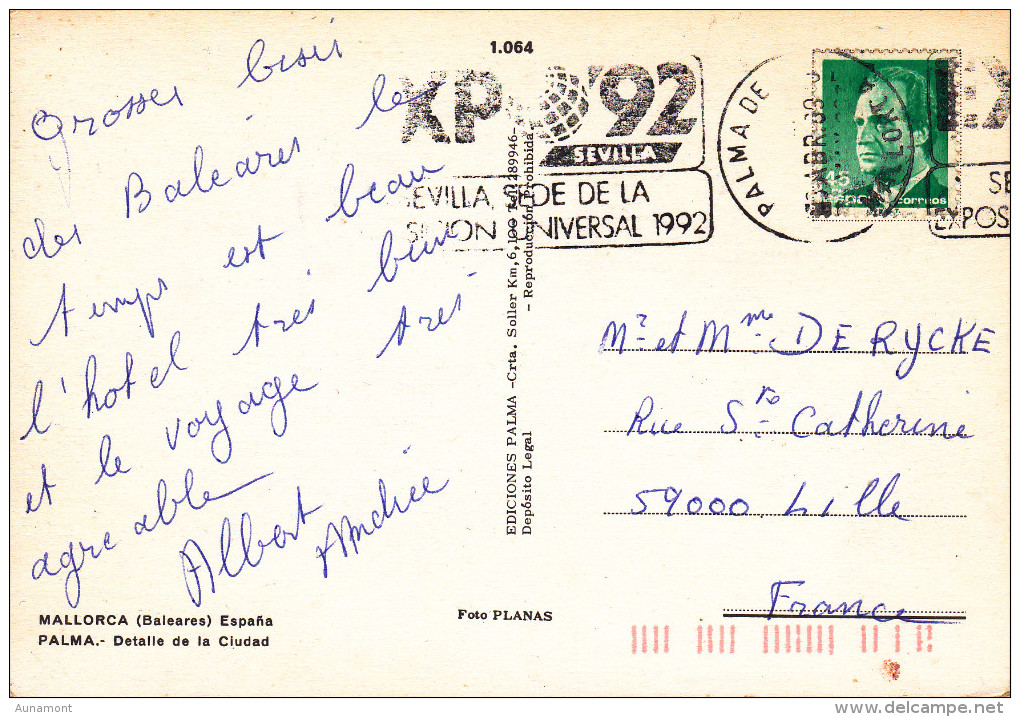 1.064
Grosses bises
des Baléares le
temps est beau
l'hotel très bien
et le voyage très
agréable
Albert Andrée
MALLORCA (Baleares) España
PALMA.- Detalle de la Ciudad
Foto PLANAS
EDICIONES PALMA -Crta. Soller Km, 6,100 Tel. 289946-
Depósito Legal - Reproducción Prohibida
XPO'92
SEVILLA
SEVILLA, SEDE DE LA
SICION UNIVERSAL 1992
PALMA DE MALLORCA
ABR. 89
45
correos
EX
SE
EXPOS
Mr et Mme DE RYCKE
Rue Ste Catherine
59000 Lille
France
Aunamont